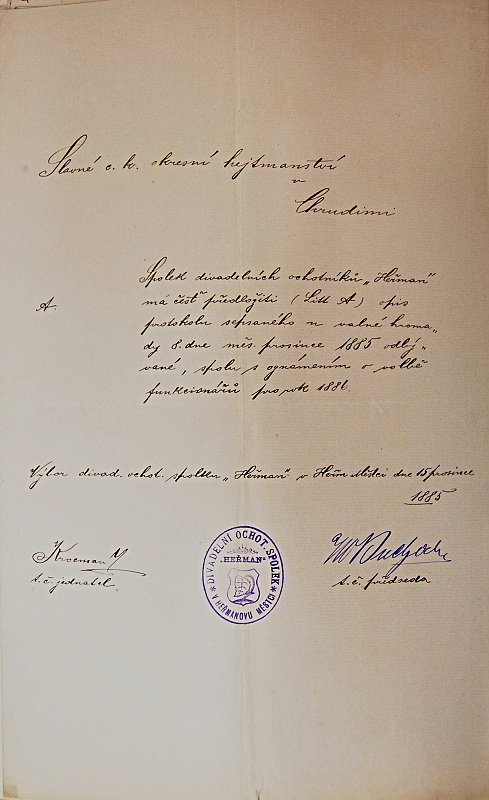 Slavné c. k. okresní hejtmanství
v
Chrudimi
Spolek divadelních ochotníků „Heřman"
A. má čest předložiti (Litt A) opis
protokolu sepsaného u valné hroma„
dy 8. dne měs. prosince 1885 odbý„
vané, spolu s oznámením o volbě
funkcionářů pro rok 1886.
Výbor divad. ochot. spolku „Heřman" v Heřm Městci dne 15 prosince
1885
t. č. jednatel.
DIVADELNÍ OCHOT. SPOLEK
„HEŘMAN"
V HEŘMANOVU MĚSTCI
t. č. předseda